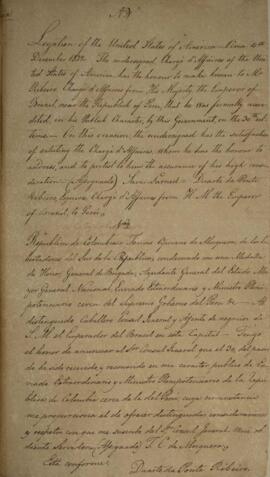 Nº 1º
Legation of the United States of America - Lima 4th
December 1832. The undersigned Chargé d'Affaires of the Uni
ted States of America has the honour to make known to Mr
Ribeiro Chargé d'Affaires from His Majesty the Emperor of
Brazil, near the Republic of Peru, that he was formally accre
dited, in his Publick Character, by this Government, on the 30th ul
timo - On this occasion, the undersigned has the satisfaction
of saluting the Chargé d'Affaires, whom he has the honour to
address, and to protest to him the assurance of his high consi
deration - (Assignado) Saml Larned - Duarte da Ponte
Ribeiro Esquire Chargé d'Affaires from H. M. the Emperor
of Brazil, to Peru.
Nº 2
Republica de Colombia = Tomas Cipriano de Mosquera de los Li
bertadores del Sur de la Republica, condecorado con una Medalla
de Honor, General de Brigada, Ayudante General del Estado Ma
yor General Nacional, Enviado Extraordinario y Ministro Pleni
potenciario cerca del Supremo Gobierno del Perú &c - Al
distinguido Caballero Consul Jeneral y Ajente de negocios de
S. M. el Emperador del Brasil en esta Capital - Tengo
el honor de anunciar al Sr Consul Jeneral que el 30 del pasa
do he sido recibido y reconocido en mi caracter publico de En
viado Extraordinario y Ministro Plenipotenciario de la Repu
blica de Colombia cerca de la del Perú, cuya circunstancia
me proporciona el de ofrecer distinguidas consideraciones
y respetos con que me suscribo del Sr Consul Jeneral muy obe
diente Servidor (Assignado) T. C. de Mosquera.
Está conforme
Duarte da Ponte Ribeiro.